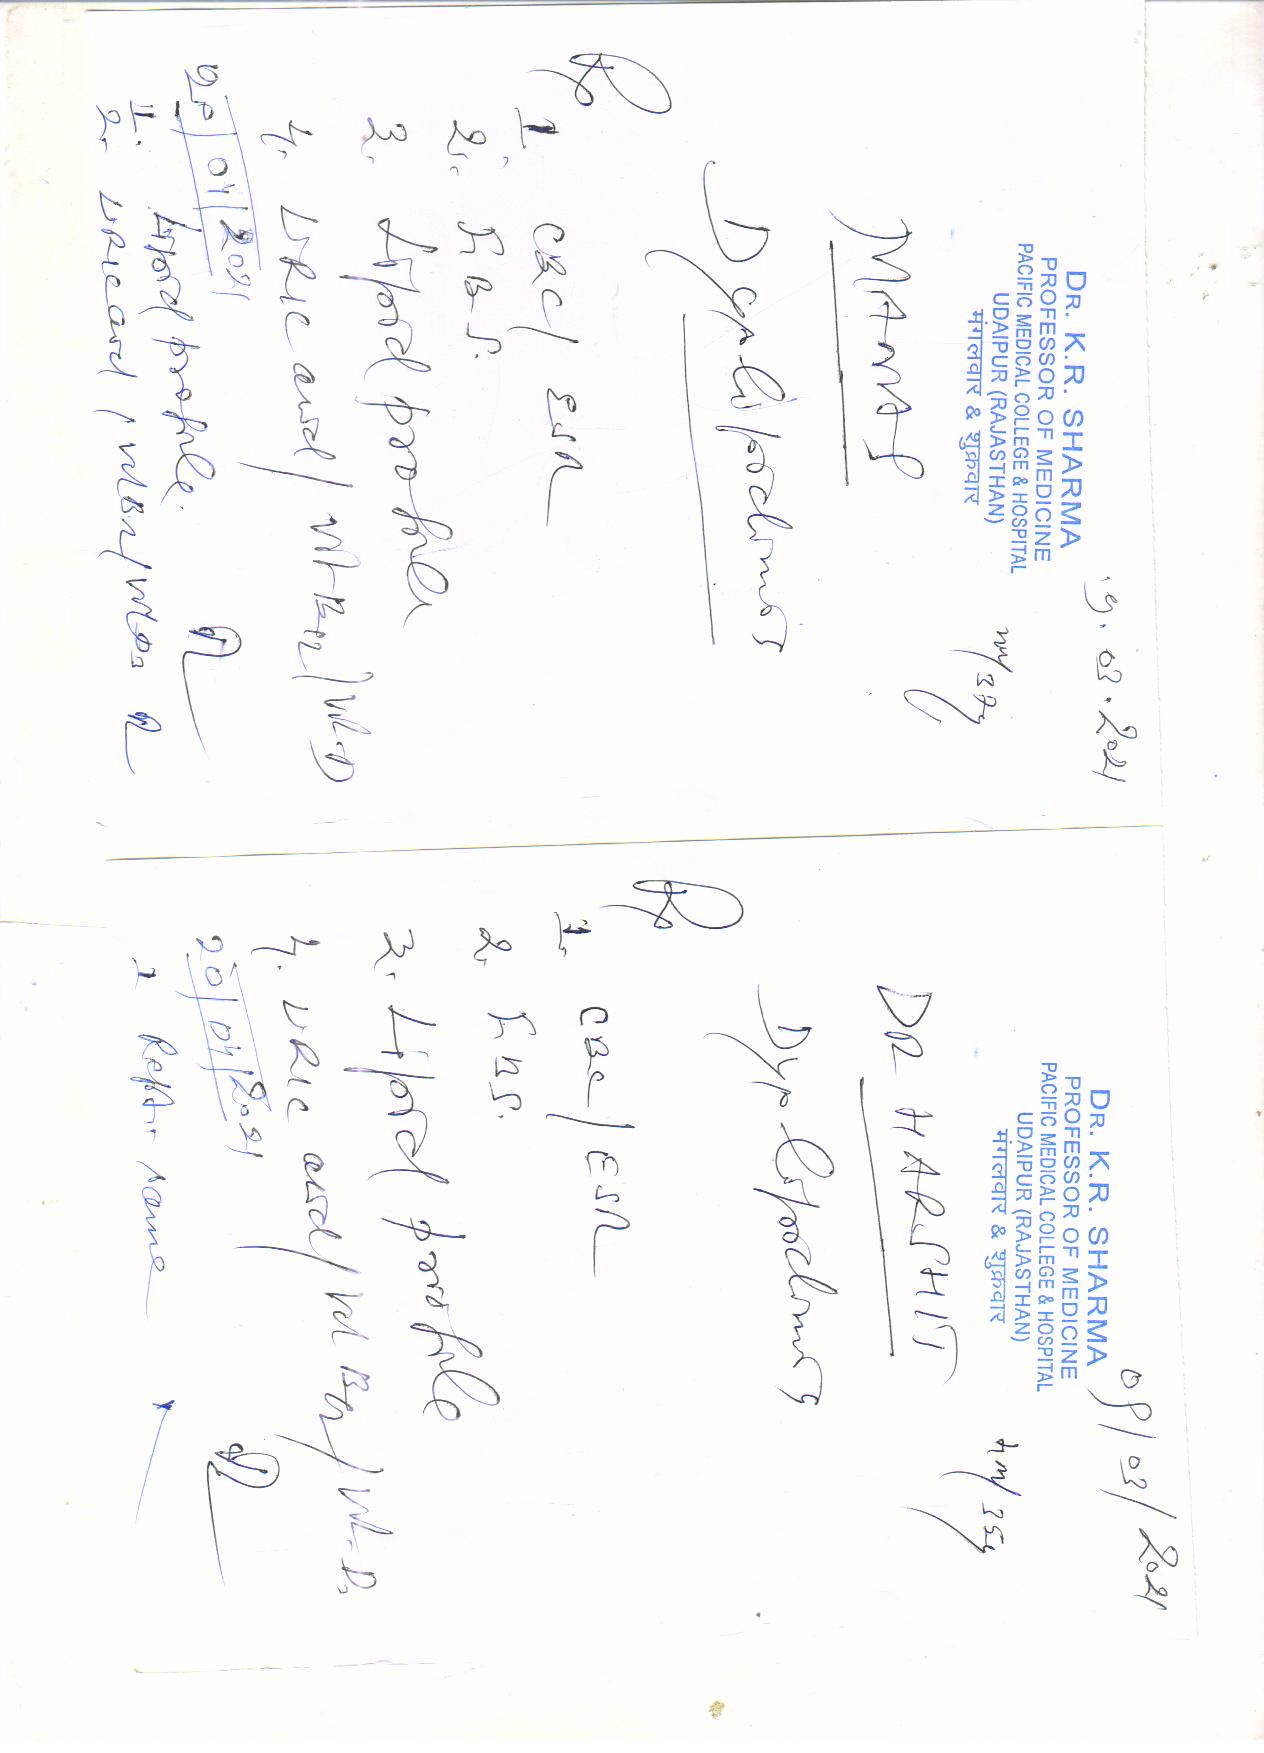 DR. K.R. SHARMA
PROFESSOR OF MEDICINE
PACIFIC MEDICAL COLLEGE & HOSPITAL
UDAIPUR (RAJASTHAN)
मंगलवार & शुक्रवार
03.2021
MANAS
Dyslipidimas
1 CBC/ESR
2. FBS.
3. Lipid profile
4. URIC acid/Vit-B12/Vit-D
20/04/2021
1. Lipid profile.
2. URIC acid/VitB12/VitD3
DR. K.R. SHARMA
PROFESSOR OF MEDICINE
PACIFIC MEDICAL COLLEGE & HOSPITAL
UDAIPUR (RAJASTHAN)
मंगलवार & शुक्रवार
09/03/2021
DR HARSHIT
M/35y
Dyslipidimas
1. CBC/ESR
2. FBS.
3. Lipid profile
4. URIC acid/Vit B12/Vit-D.
20/04/2021
1 Rept. same